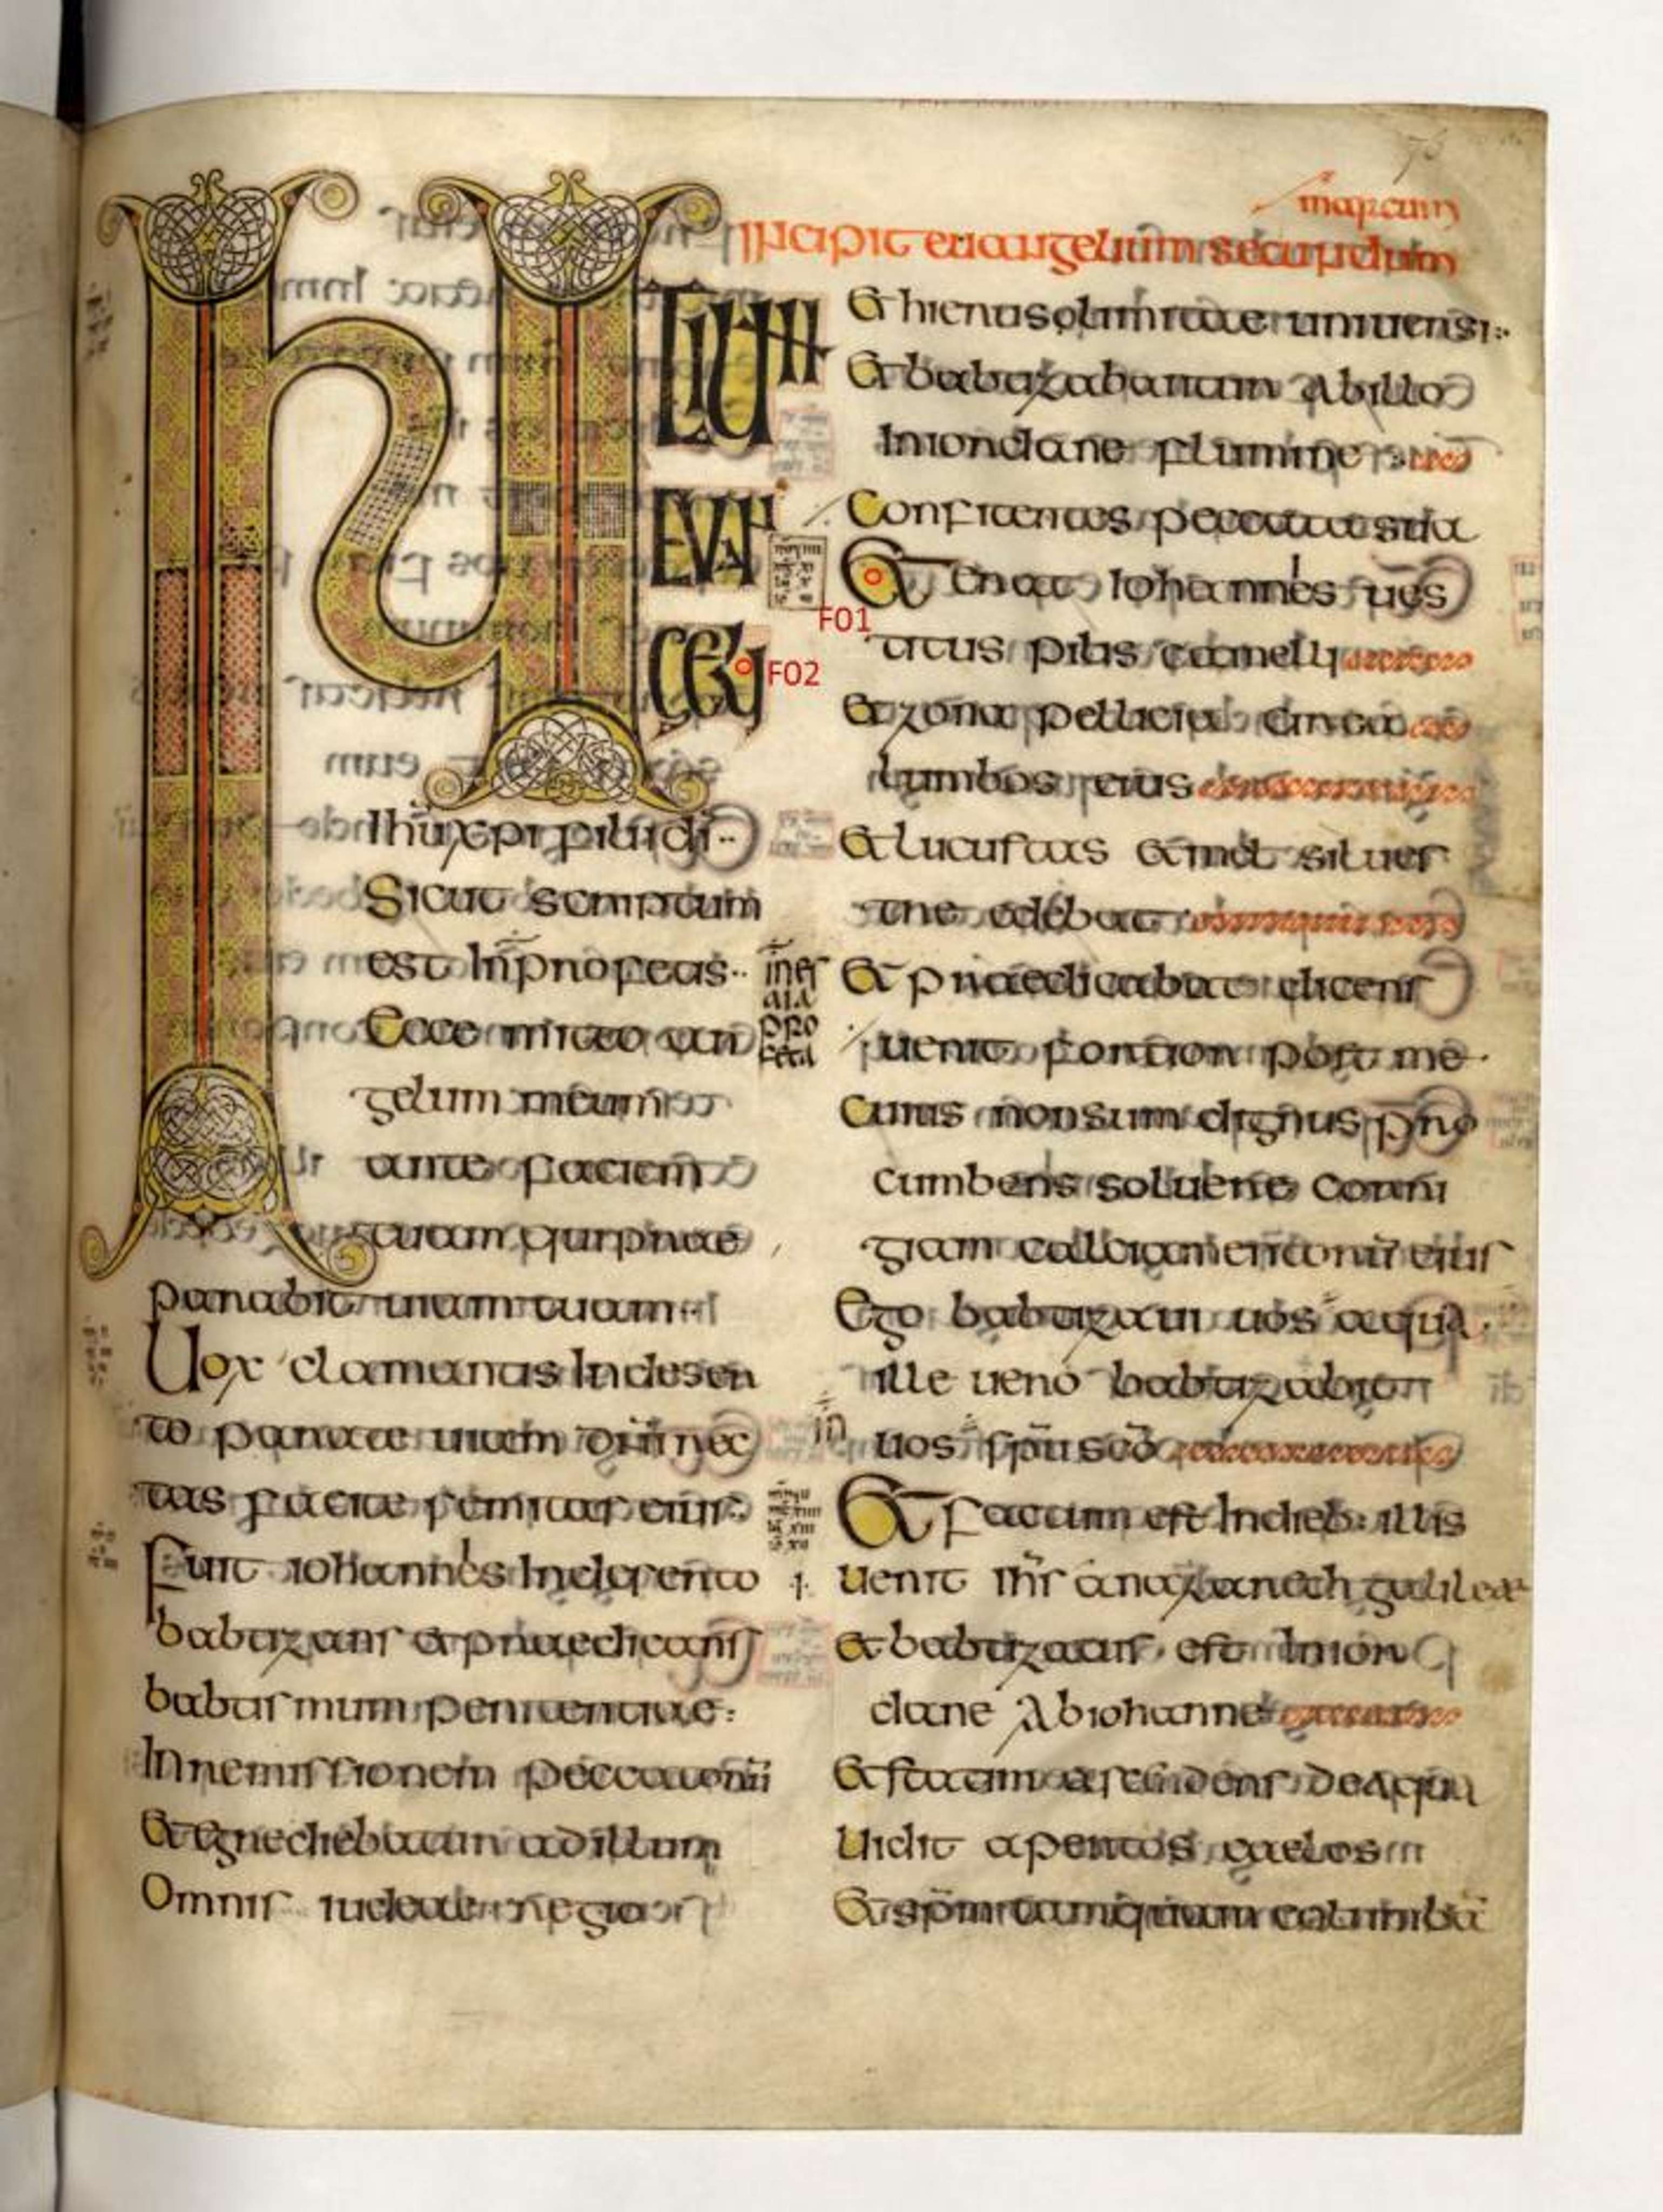 76
marcum
Incipit euangelium secundum
INI
TIUM
EVAN
GELII
Ihu xpi filii di
Sicut scriptum
est In profetas
in es
aia
pro
feta
Ecce mitto an
gelum meum
ante faciem
tuam qui prae
parabit uiam tuam
Uox clamantis In deser
to parate uiam dni rec
tas facite semitas eius
Fuit iohannes In deserto
babtizans et praedicans
babtismum penitentiae
In remissionem peccatorum
Et egrediebatur ad illum
Omnis iudeae regio
Et hierusolimitae uniuersi
Et babtizabantur Ab illo
In iordane flumine
Confitentes peccata sua
F01
Et erat Iohannes ues
F02
titus pilis camelli
Et zona pellicia circa
lumbos eius
Et lucustas et mel silues
tre edebat
Et praedicabat dicens
uenit fortior post me
Cuius non sum dignus pro
cumbens soluere corri
giam calciamentorum eius
Ego babtizaui uos aqua
ille uero babtizabit
in uos spu sco
Et factum est In dieb: illis
uenit ihs a nazareth galileae
et babtizatus est In ior
dane Ab iohanne
Et statim ascendens de Aqua
Uidit apertos caelos
Et spm tamquam columba